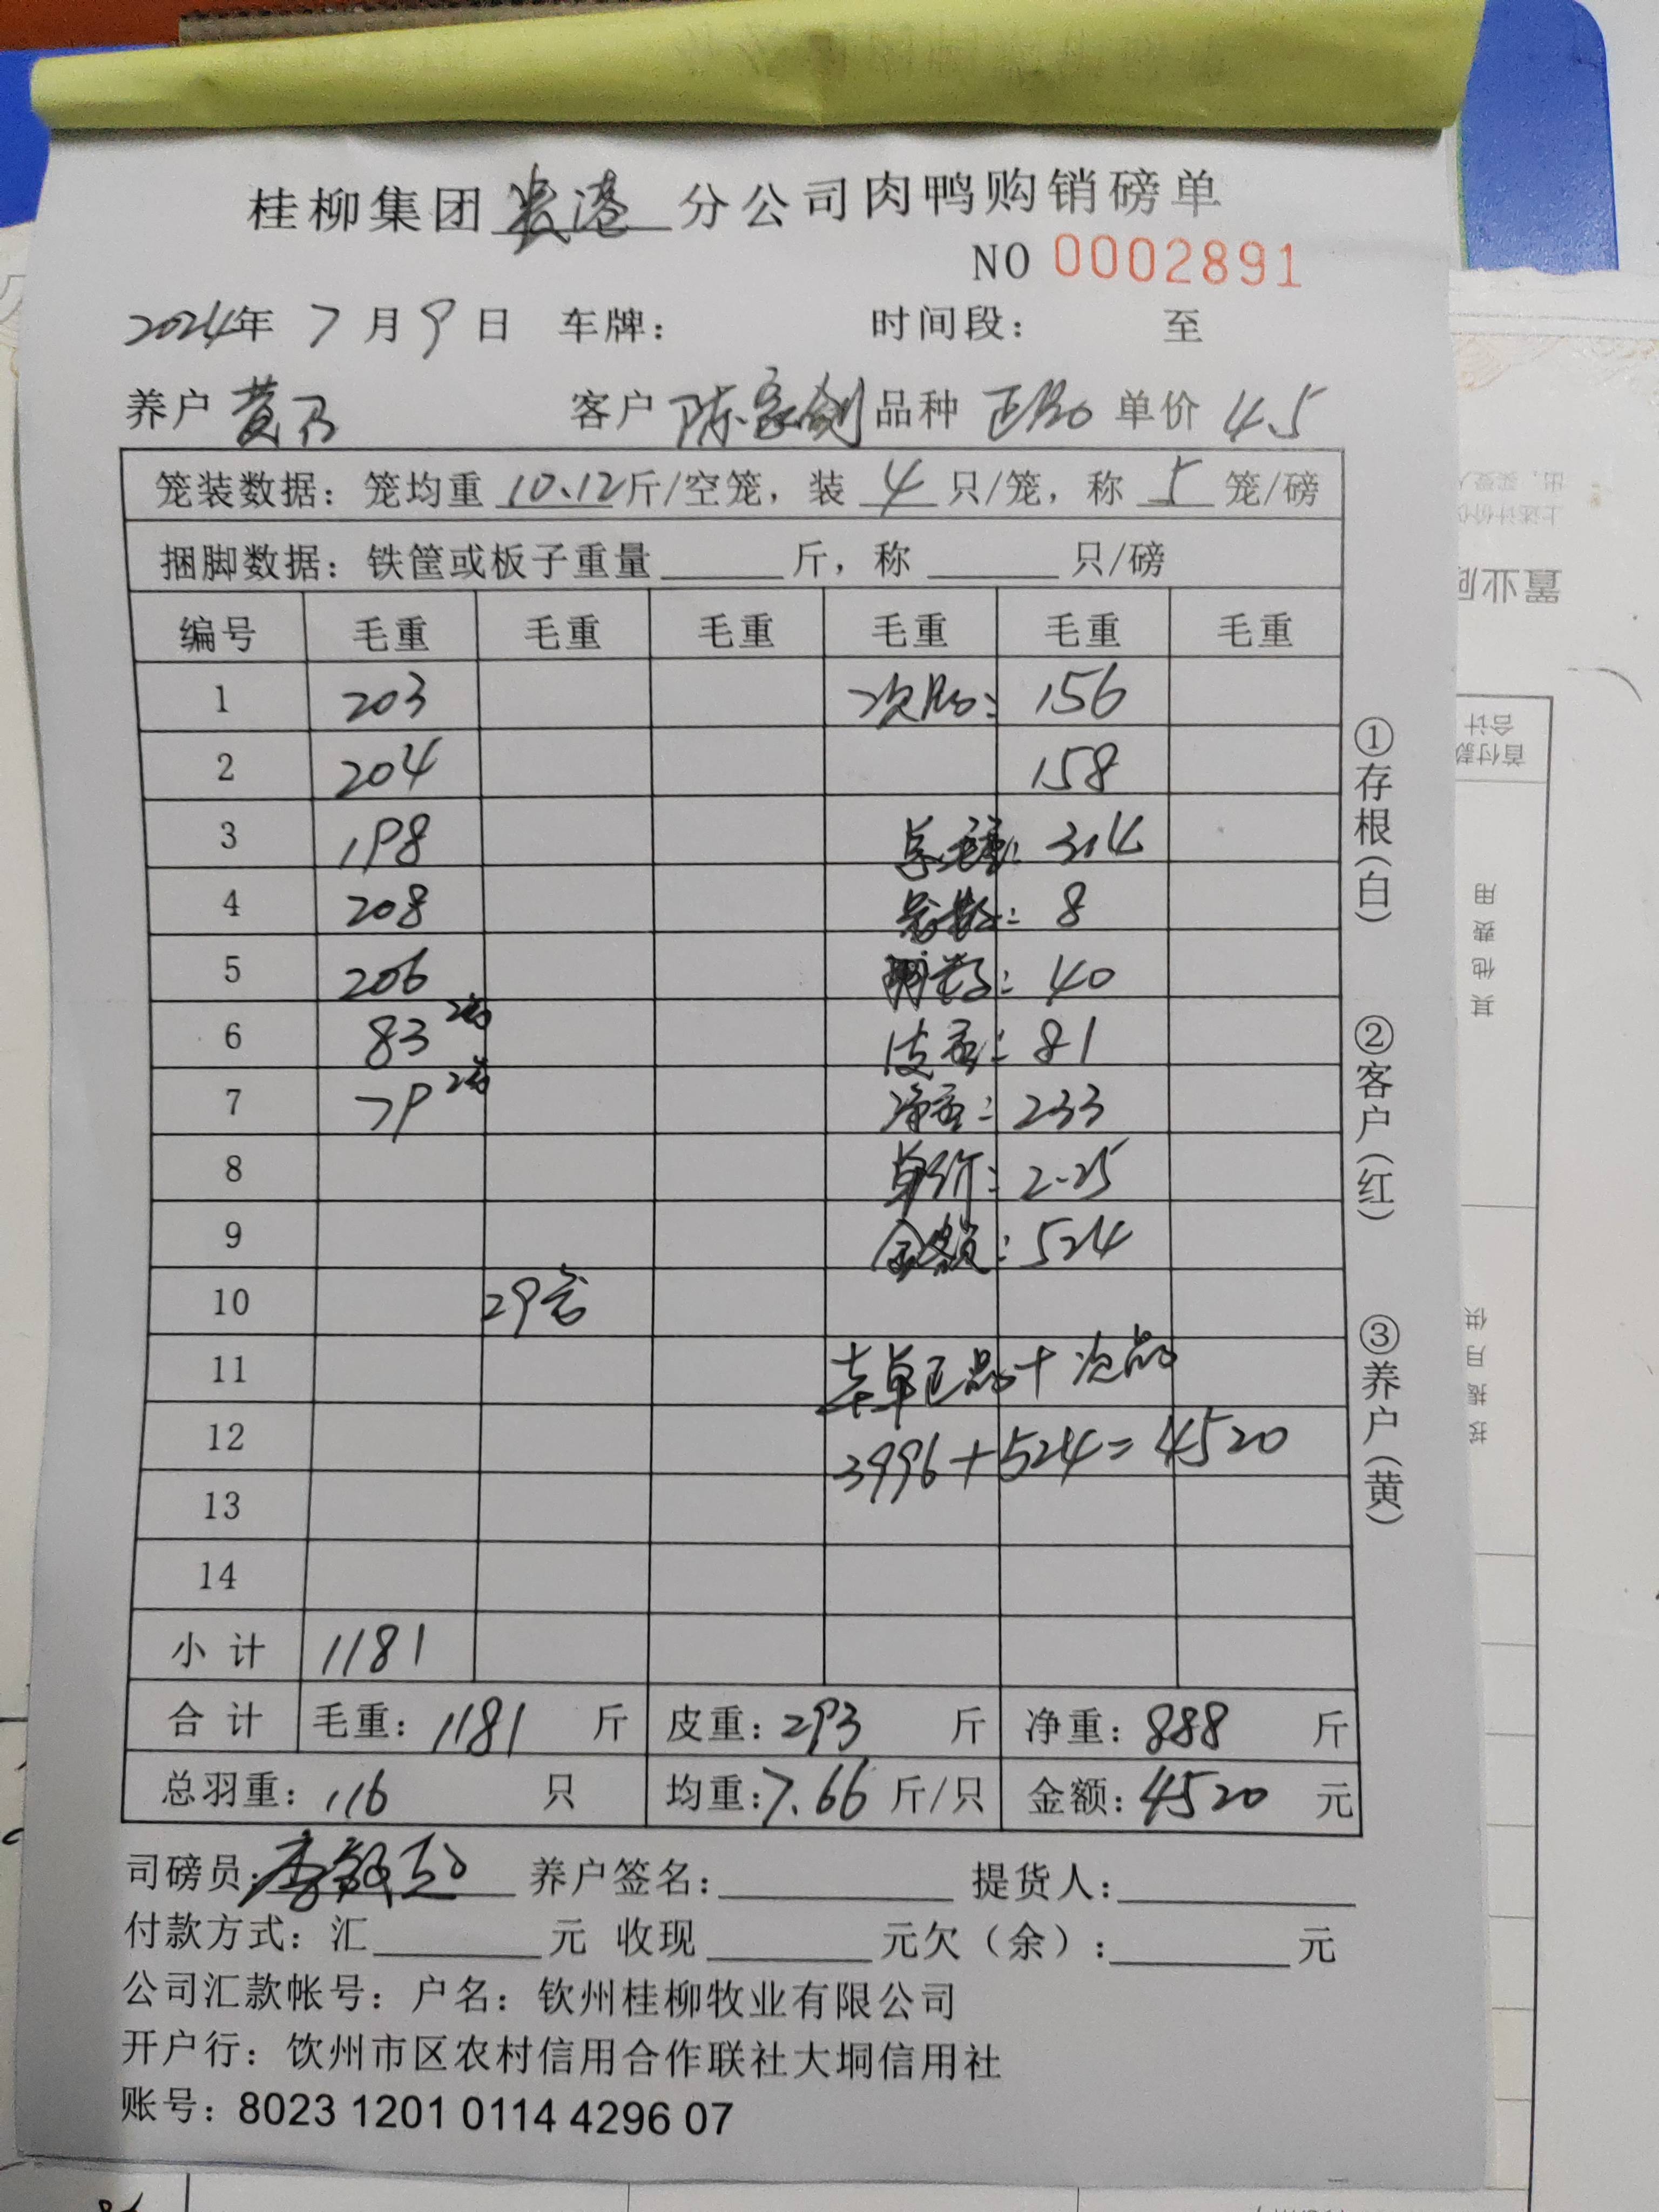 桂柳集团 贵港 分公司肉鸭购销磅单
NO 0002891
2024年 7 月 9 日 车牌： 时间段： 至
养户 黄乃 客户 陈家剑 品种 正品 单价 4.5
笼装数据：笼均重 10.12 斤/空笼，装 4 只/笼，称 5 笼/磅
捆脚数据：铁筐或板子重量 斤，称 只/磅
编号 毛重 毛重 毛重 毛重 毛重 毛重
1 203 次品：156
2 204 158
3 198 总毛重：314
4 208 笼数：8
5 206 只数：40
6 83 2笼 皮重：81
7 79 2笼 净重：233
8 单价：2.25
9 金额：524
10 29笼
11 本单正品＋次品
12 3996＋524＝4520
13
14
小计 1181
合计 毛重：1181 斤 皮重：293 斤 净重：888 斤
总羽重：116 只 均重：7.66 斤/只 金额：4520 元
司磅员： 养户签名： 提货人：
付款方式：汇 元 收现 元欠（余）： 元
公司汇款帐号：户名：钦州桂柳牧业有限公司
开户行：饮州市区农村信用合作联社大垌信用社
账号：8023 1201 0114 4296 07
①存根（白）
②客户（红）
③养户（黄）
置业
上述计价
首付款
合计
其他费用
按揭月供